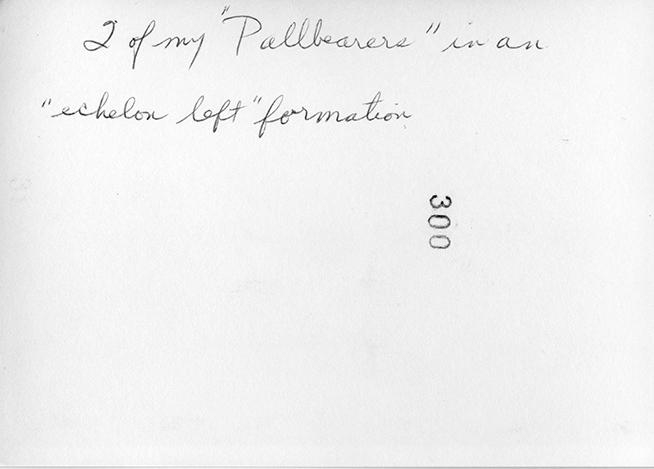 2 of my "Pallbearers" in an
"echelon left" formation
300